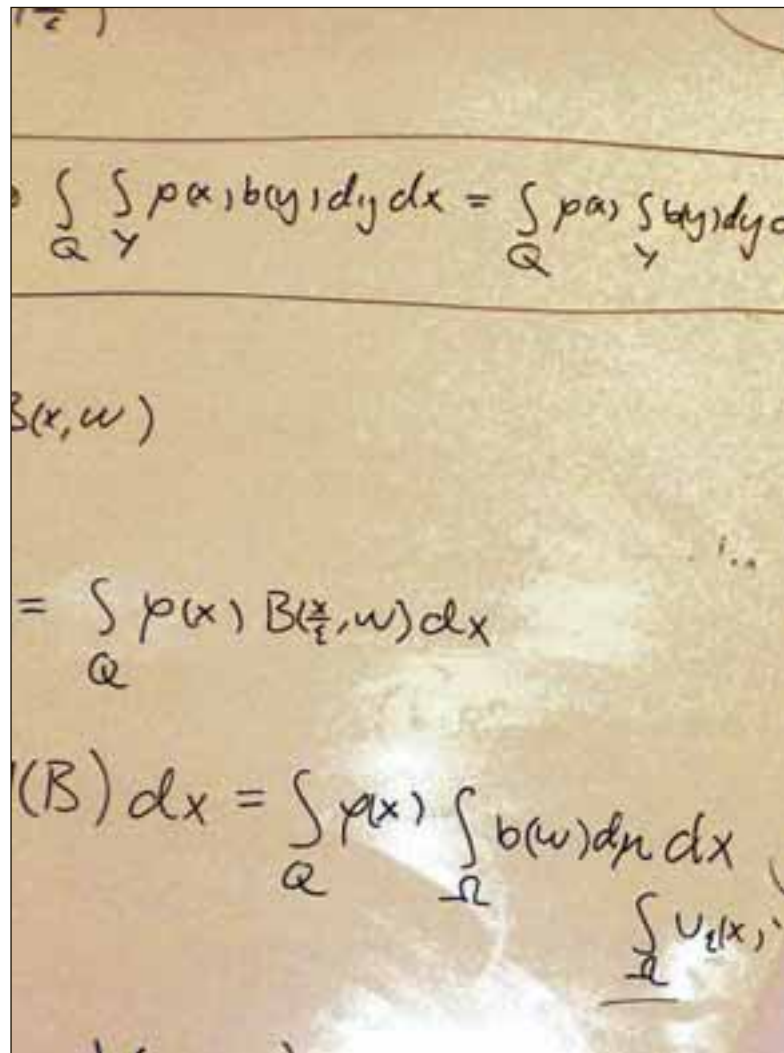 (x/ε)
∫_Q ∫_Y φ(x) b(y) dy dx = ∫_Q φ(x) ∫_Y b(y) dy d
B(x, ω)
= ∫_Q φ(x) B(x/ε, ω) dx
(B) dx = ∫_Q φ(x) ∫_Ω b(ω) dμ dx
∫_Ω u_ε(x,